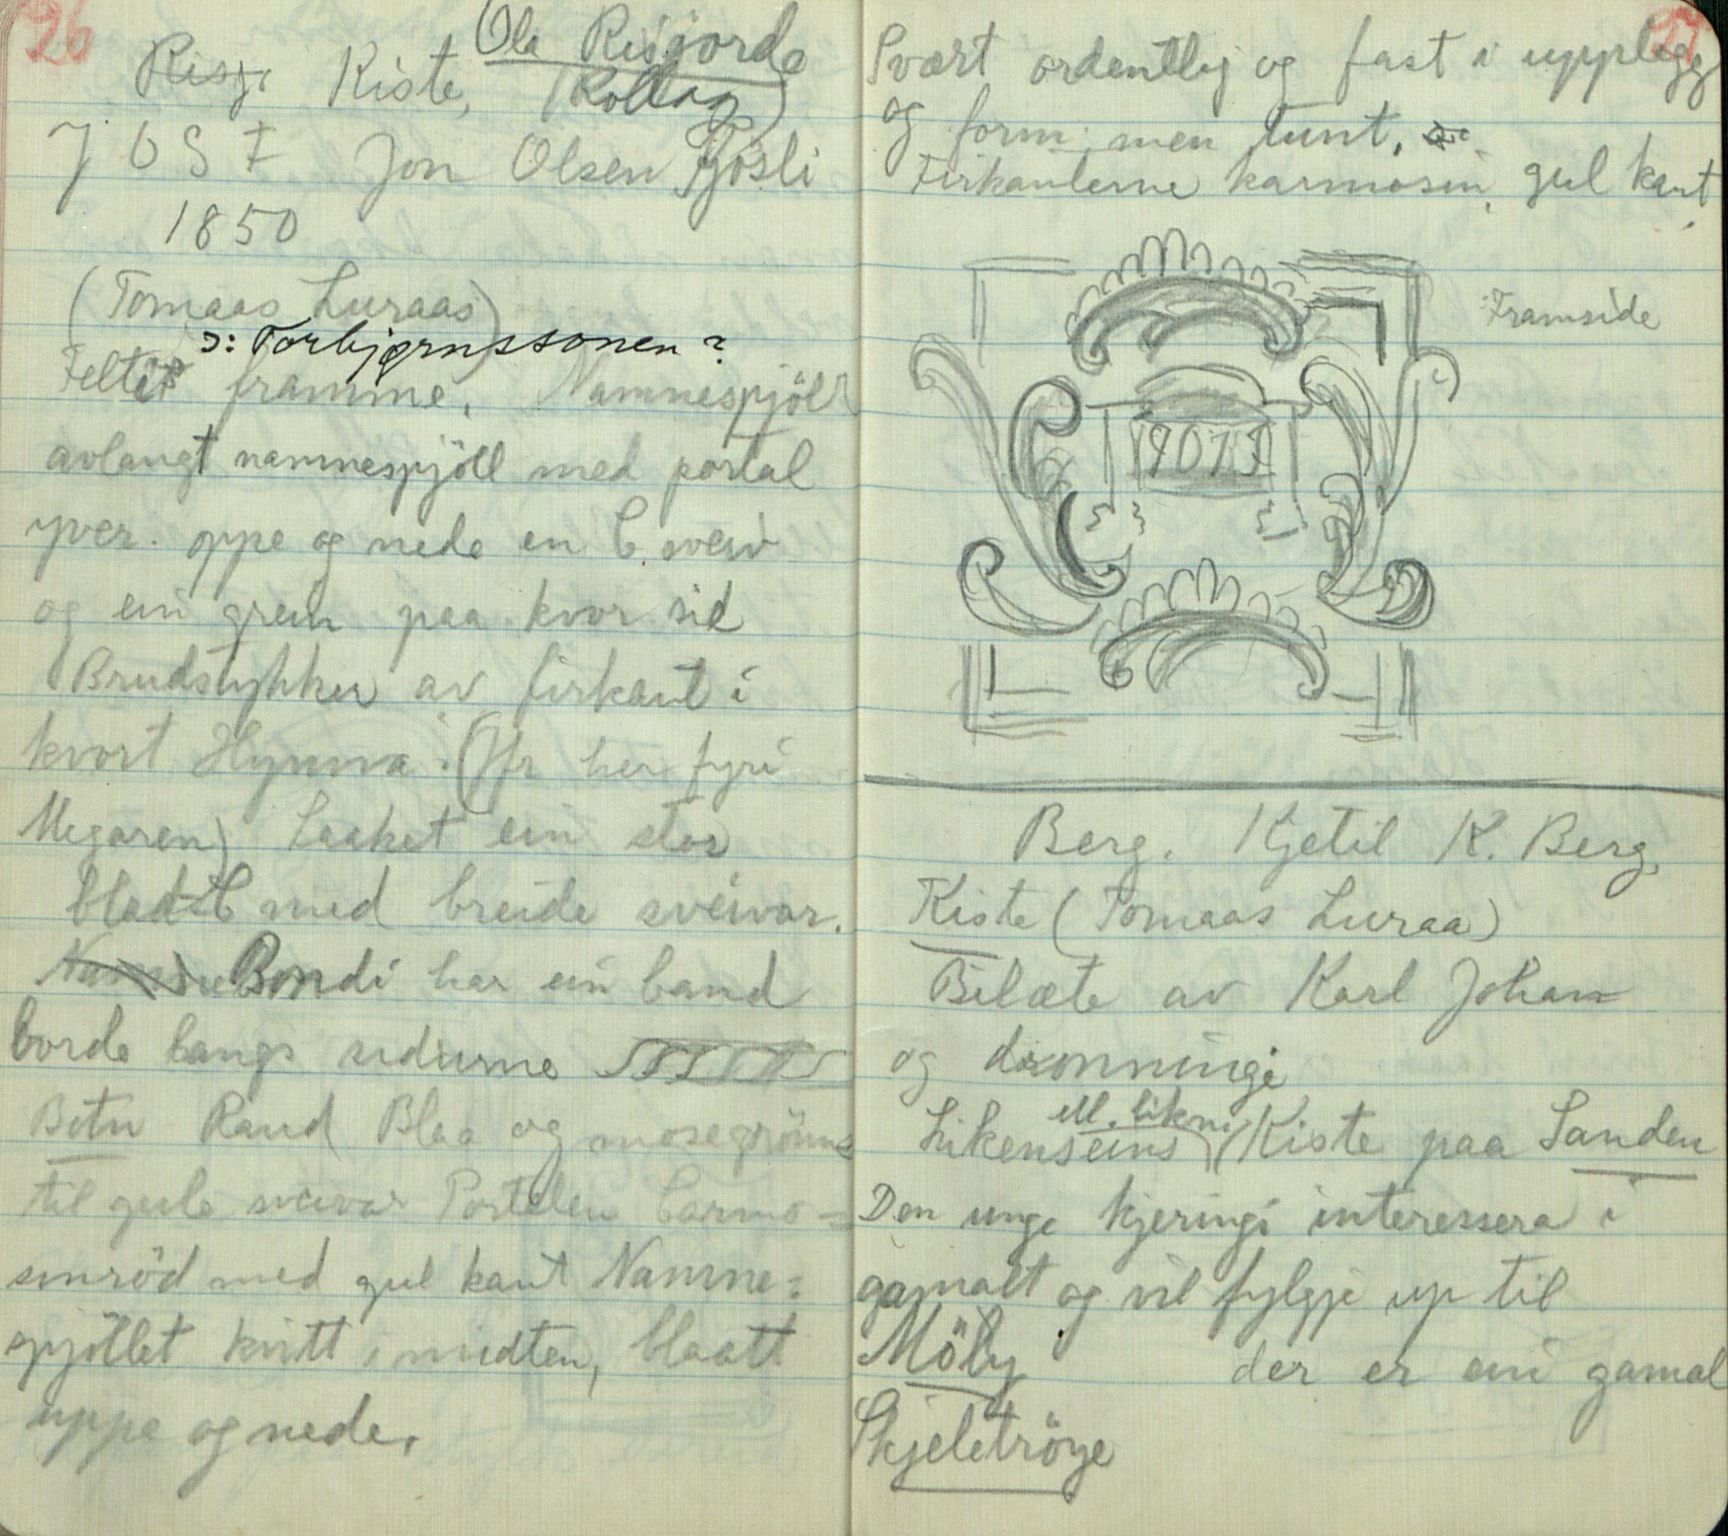 26
Ola Risgorde
Risgr Kiste, (Rollag)
J O S F Jon Olsen Fjösli
1850
(Tomaas Luraas)
ɔ: Torbjørnssonen?
Feltet framme. Namnespjöll
avlangt namnespjöll med portal
yver. oppe og nede en C sveiv
og ein grein paa kvor sid
Brudstykker av firkant i
kvort Hynna. (Jfr her fyri
Megaren) Laaket ein stor
blad-C med breide sveivar.
Bondi har ein band
borde langs sidurne
Botn Raud Blaa og mosegröne
til gule sveivar Portalen karmo-
sinröd med gul kant Namne-
spjöllet kvitt i midten, blaatt
uppe og nede.
27
Svært ordentleg og fast i upplegg
og form men tunt.
Firkanterne karmosin, gul kant.
Framside
Berg. Kjetil K. Berg.
Kiste (Tomaas Luraa)
Bilæte av Karl Johan
og dronningi
ell. likn
Likenseins (Kiste paa Sanden
Den unge kjeringi interessera i
gamalt og vil fylgje up til
Möly der er ein gamal
Skjeletröye